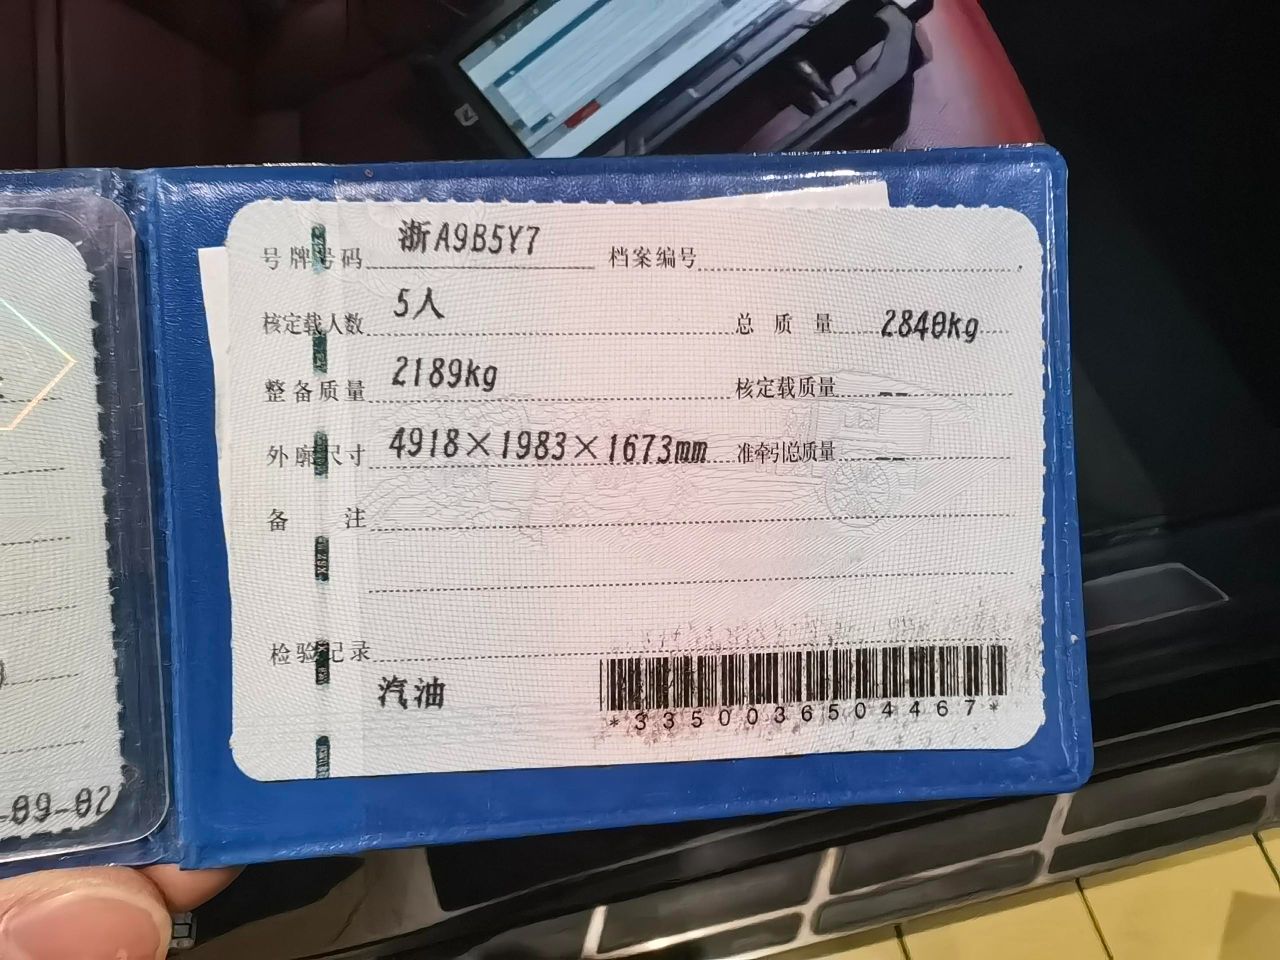 号牌号码 浙A9B5Y7 档案编号
核定载人数 5人 总质量 2840kg
整备质量 2189kg 核定载质量 --
外廓尺寸 4918×1983×1673mm 准牵引总质量 --
备注
检验记录
汽油
*3350036504467*
-09-02